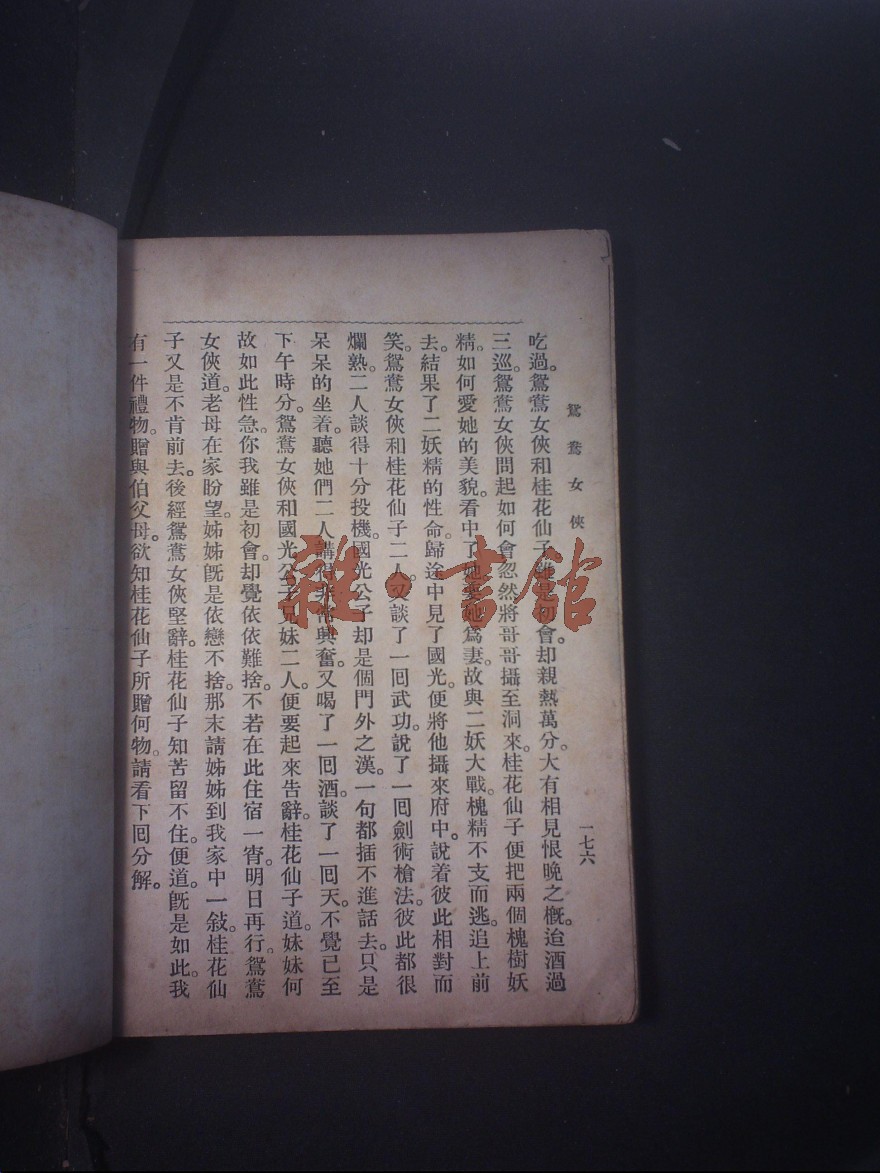 鴛鴦女俠
一七六
吃過。鴛鴦女俠和桂花仙子雖是初會。却親熱萬分。大有相見恨晚之槪。迨酒過
三巡。鴛鴦女俠問起如何會忽然將哥哥攝至洞來。桂花仙子便把兩個槐樹妖
精。如何愛她的美貌。看中了她要她爲妻。故與二妖大戰。槐精不支而逃。追上前
去。結果了二妖精的性命。歸途中見了國光。便將他攝來府中。說着彼此相對而
笑。鴛鴦女俠和桂花仙子二人。又談了一囘武功。說了一囘劍術槍法。彼此都很
爛熟。二人談得十分投機。國光公子却是個門外之漢。一句都揷不進話去。只是
呆呆的坐着。聽她們二人講得非常興奮。又喝了一囘酒。談了一囘天。不覺已至
下午時分。鴛鴦女俠和國光公子兄妹二人。便要起來告辭。桂花仙子道。妹妹何
故如此性急。你我雖是初會。却覺依依難捨。不若在此住宿一宵。明日再行。鴛鴦
女俠道。老母在家盼望。姊姊旣是依戀不捨。那末請姊姊到我家中一敍。桂花仙
子又是不肯前去。後經鴛鴦女俠堅辭。桂花仙子知苦留不住。便道。旣是如此。我
有一件禮物。贈與伯父母。欲知桂花仙子所贈何物。請看下囘分解。
雜·書館